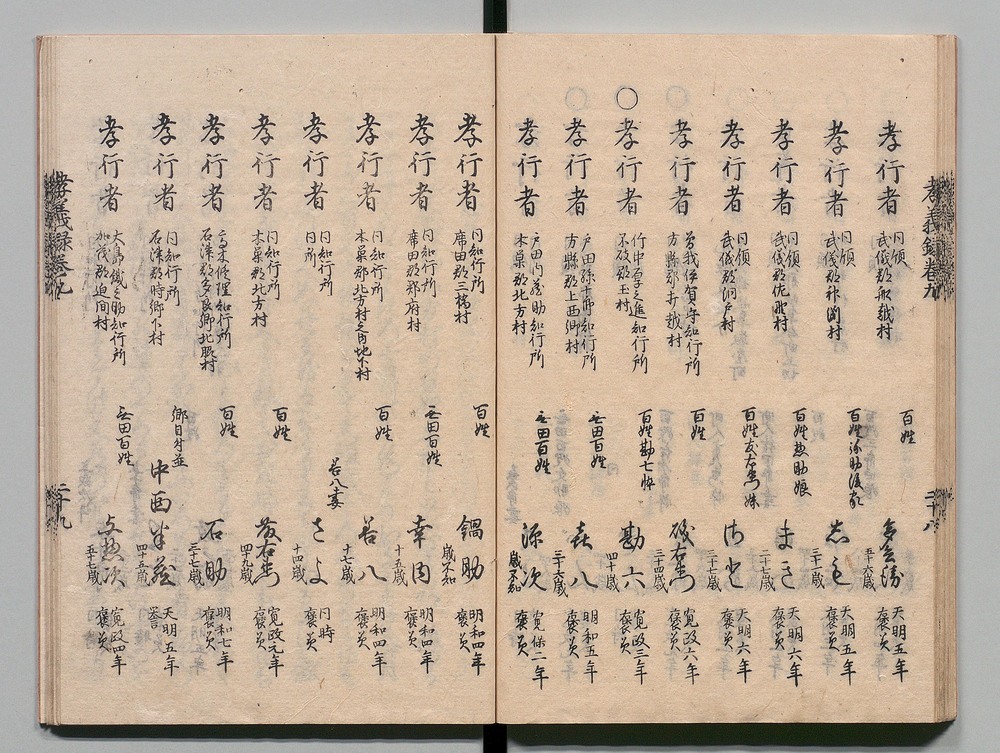 孝義録巻九
二十八
孝行者 同領 武儀郡船越村 百姓 五十六歳 天明五年 褒美
孝行者 同領 武儀郡 百姓 三十一歳 天明五年 褒美
孝行者 同領 武儀郡佐野村 百姓惣助娘 まき 二十七歳 天明六年 褒美
孝行者 同領 武儀郡洞戸村 百姓友右衛門妹 二十二歳 天明六年 褒美
孝行者 曽我伊賀守知行所 方縣郡 百姓 磯右衛門 三十四歳 寛政六年 褒美
○
孝行者 竹中 知行所 不破郡玉村 百姓勘七忰 勘六 四十歳 寛政三年 褒美
孝行者 戸田孫十郎知行所 方縣郡上西郷村 無田百姓 喜八 三十六歳 明和五年 褒美
孝行者 戸田内蔵助知行所 本巣郡北方村 無田百姓 源次 歳不知 寛保二年 褒美
孝行者 同知行所 席田郡三橋村 百姓 鍋助 歳不知 明和四年 褒美
孝行者 同知行所 席田郡郡府村 無田百姓 幸内 十五歳 明和四年 褒美
孝行者 同知行所 本巣郡北方村之内地下村 百姓 若八 十七歳 明和四年 褒美
孝行者 同知行所 同所 若八妻 さよ 十四歳 同時 褒美
孝行者 同知行所 本巣郡北方村 百姓 四十九歳 寛政元年 褒美
孝行者 高木修理知行所 石津郡多良郷北脇村 百姓 石助 三十七歳 明和七年 褒美
孝行者 同知行所 石津郡時郷下村 郷目付並 中西 四十五歳 天明五年 誉
孝行者 大島 之助知行所 加茂郡迫間村 無田百姓 与惣次 五十七歳 寛政四年 褒美
孝義録巻九
二十九